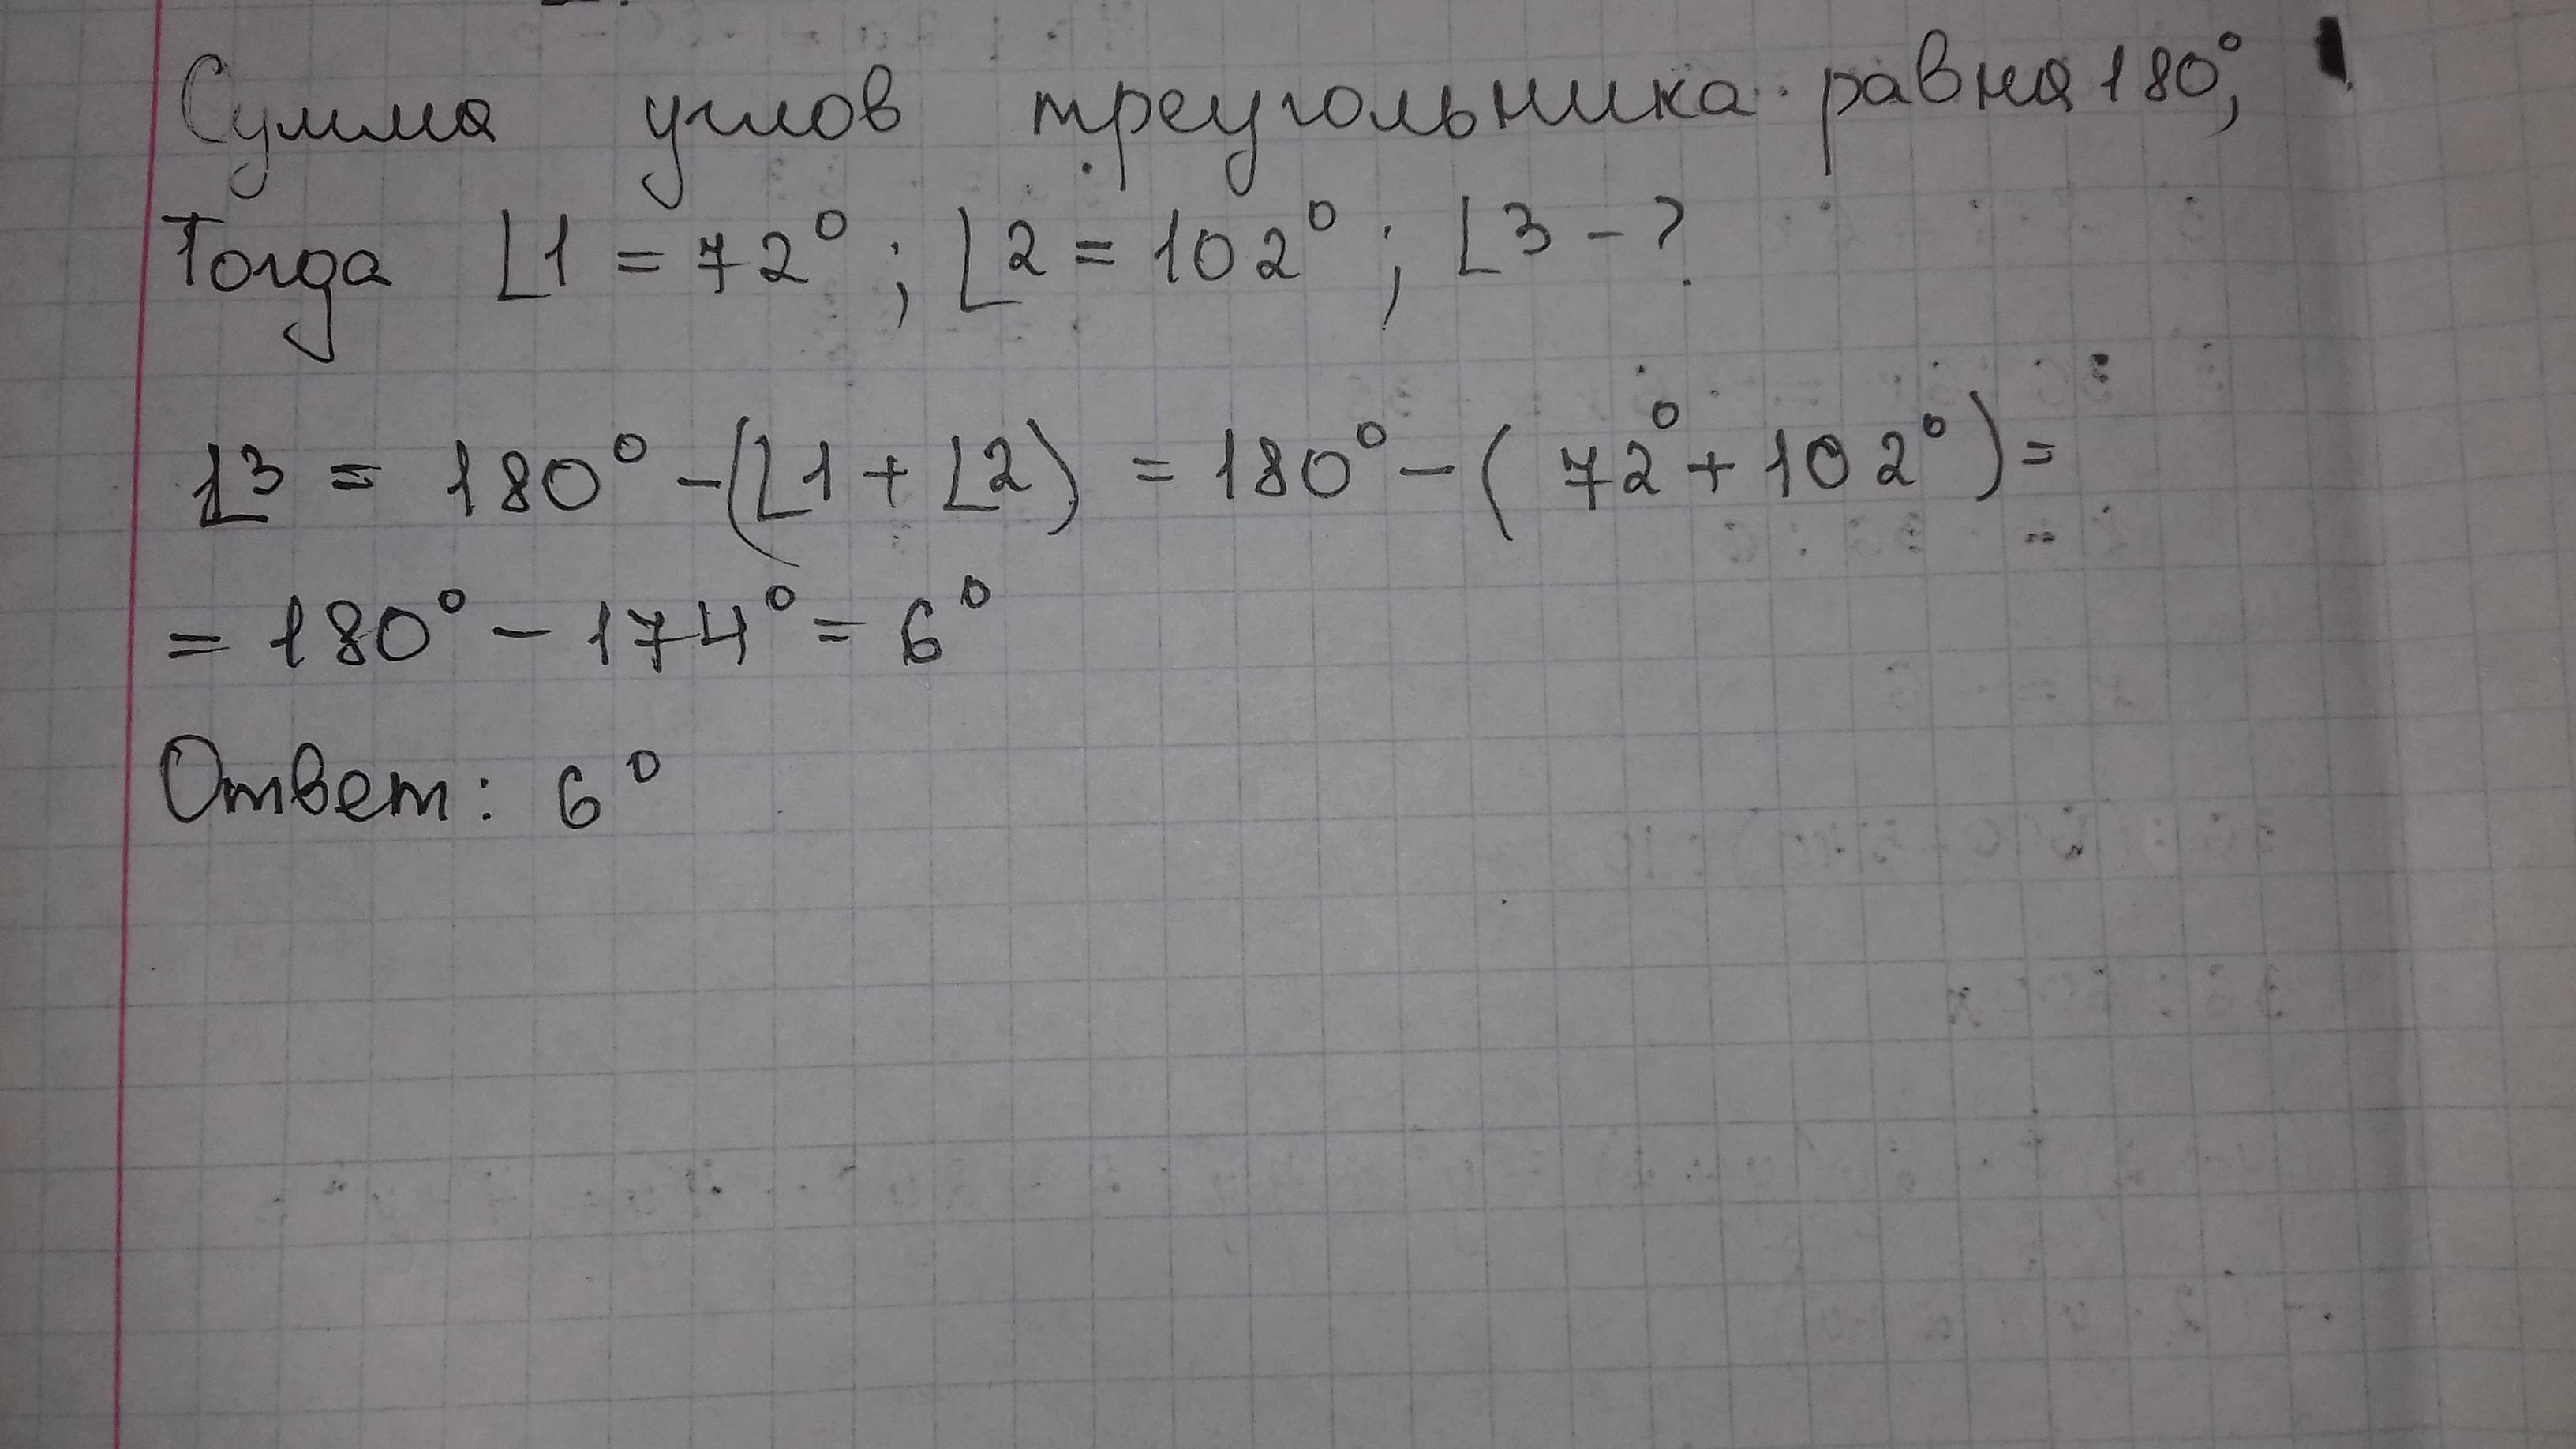 Сумма углов треугольника равна 180°;
Тогда ∠1 = 72°; ∠2 = 102°; ∠3 - ?
∠3 = 180° - (∠1 + ∠2) = 180° - (72° + 102°) =
= 180° - 174° = 6°
Ответ: 6°